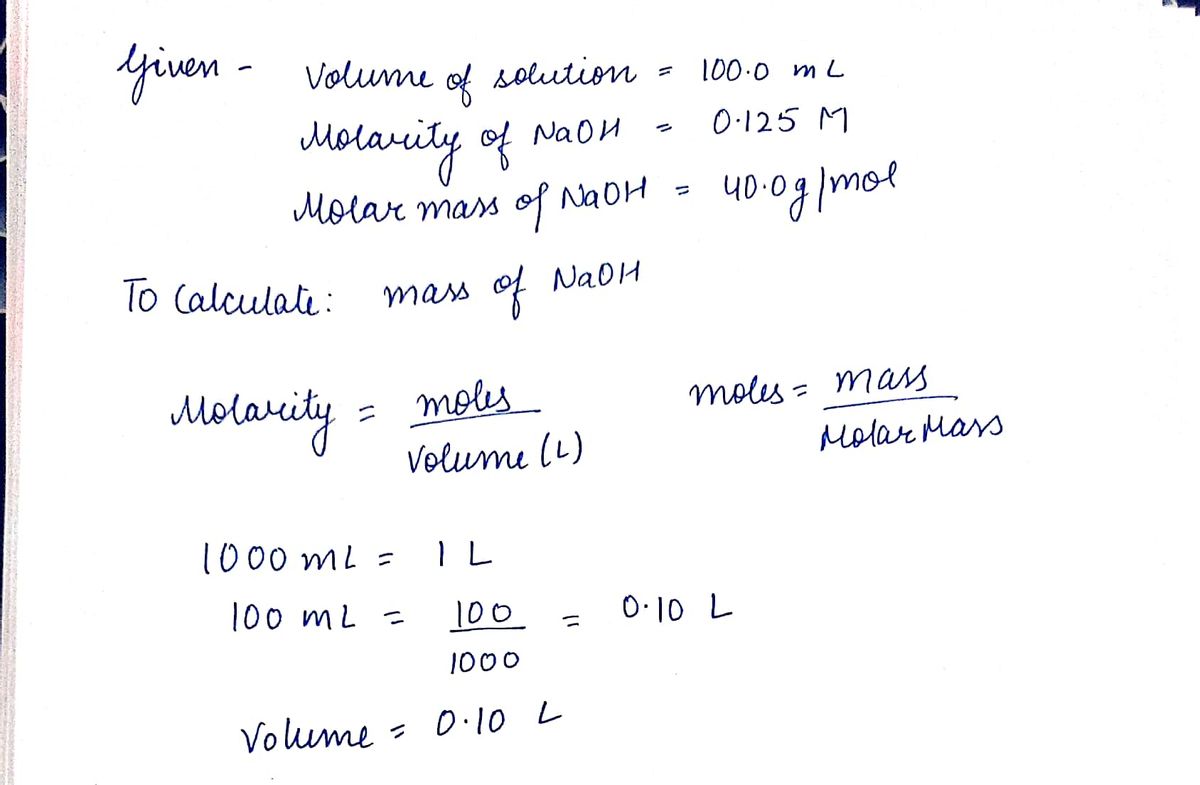 Given - Volume of solution = 100.0 mL
Molarity of NaOH = 0.125 M
Molar mass of NaOH = 40.0g/mol
To Calculate: mass of NaOH
Molarity = moles / Volume (L)    moles = mass / Molar Mass
1000 mL = 1 L
100 mL = 100 / 1000 = 0.10 L
Volume = 0.10 L